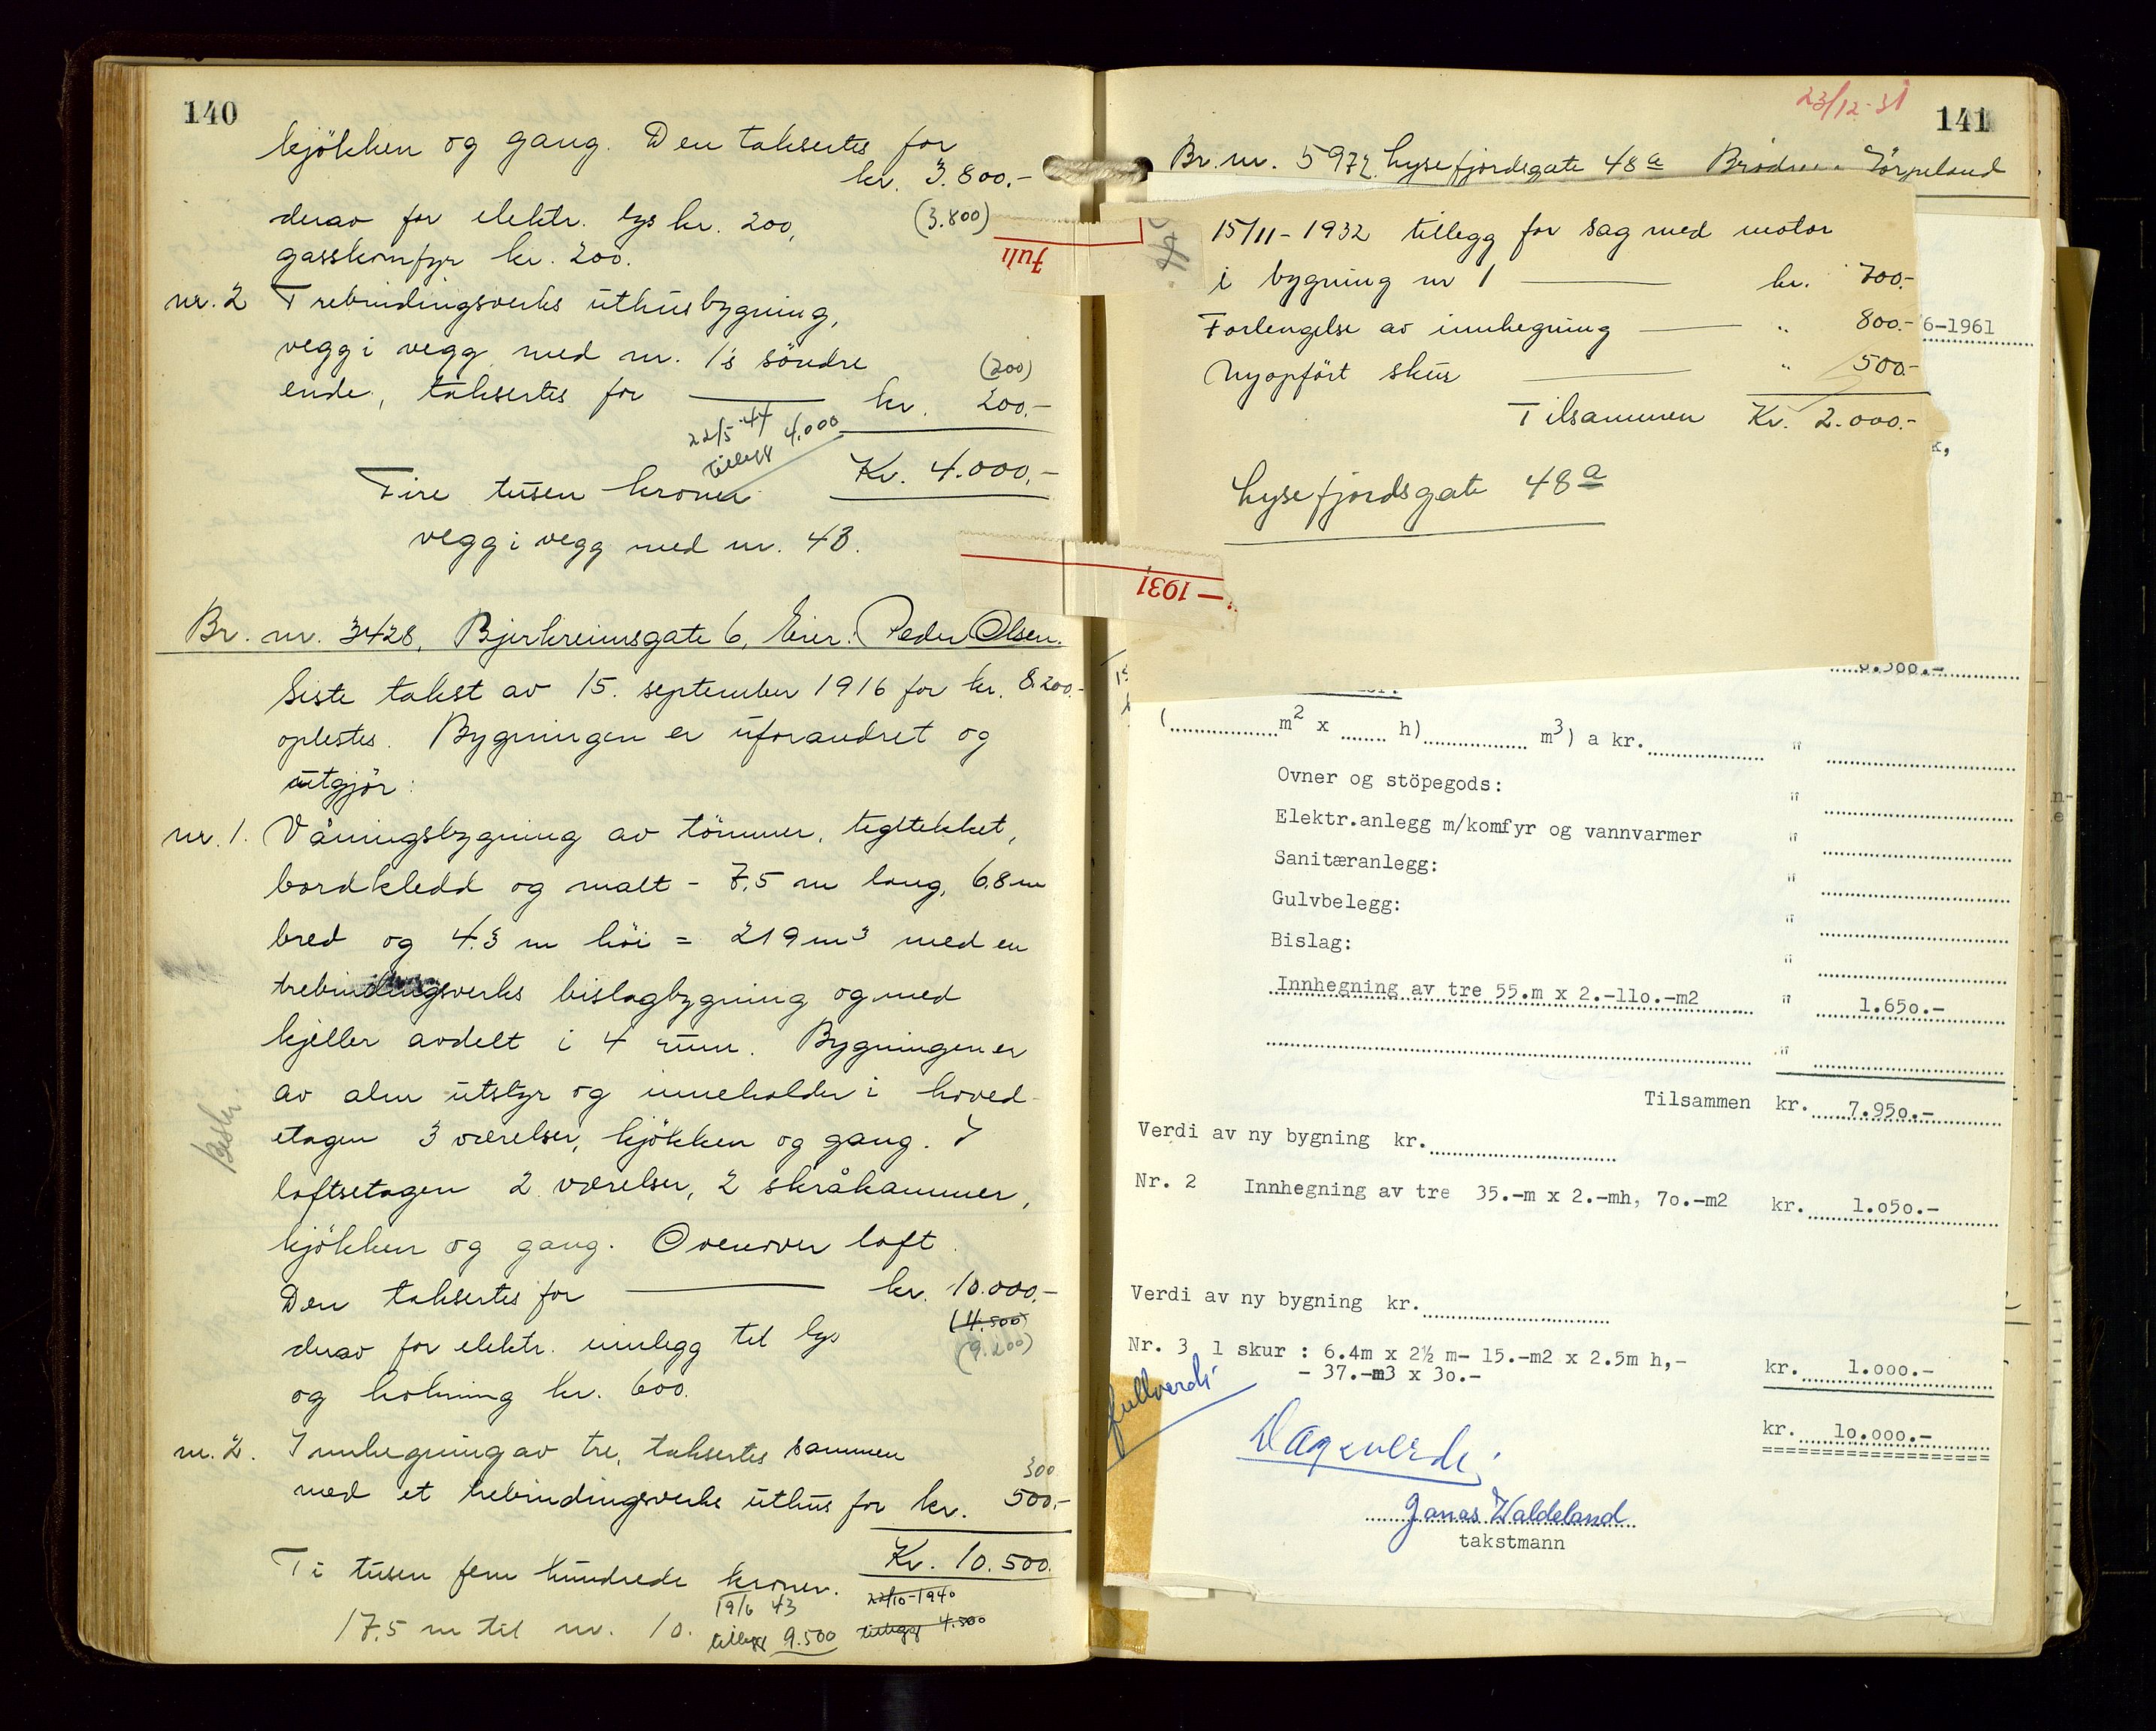 140
kjökken og gang. Den taksertes for
kr. 3.800.-
derav for elektr. lys kr. 200,
(3.800)
gasskomfyr kr. 200.
nr. 2 Trebindingsverks uthusbygning,
vegg i vegg med nr. 1's söndre
(200)
ende, taksertes for kr. 200.-
22/5 44
tillegg 4.000
Kr. 4.000.-
Fire tusen kroner
vegg i vegg med nr. 48.
Br. nr. 3428, Bjerkreimsgate 6, Eier: Peder Olsen.
Siste takst av 15. september 1916 for kr. 8.200.-
oplestes. Bygningen er uforandret og
utgjör:
nr. 1. Våningsbygning av tömmer, tegltekket,
bordkledd og malt - 7.5 m lang, 6.8 m
bred og 4.3 m höi = 219 m³ med en
trebindingsverks bislagbygning og med
kjeller avdelt i 4 rum. Bygningen er
av alm utstyr og inneholder i hoved-
etagen 3 værelser, kjökken og gang. I
loftsetagen 2 værelser, 2 skråkammer,
kjökken og gang. Ovenover loft.
Den taksertes for kr. 10.000.-
(4.500)
derav for elektr. innlegg til lys
(9.200)
og kokning kr. 600.
nr. 2. Innhegning av tre, taksertes sammen
300
med et trebindingsverks uthus for kr. 500.-
Kr. 10.500.
Ti tusen fem hundrede kroner.
19/6 43
22/10-1940
17.5 m til nr. 10.
tillegg 9.500
tillegg 4.500
Juli
— 1931
23/12-31
141
Br. nr. 5972. Lysefjordsgate 48a Brödrene Jörpeland
15/11-1932 tillegg for sag med motor
i bygning nr 1 kr. 700.-
Forlengelse av innhegning " 800.-
Nyopfört skur " 500.-
Tilsammen Kr. 2.000.-
Lysefjordsgate 48a
6-1961
(............m2 x ...... h)............ m3) a kr............ "
Ovner og stöpegods: "
Elektr.anlegg m/komfyr og vannvarmer "
Sanitæranlegg: "
Gulvbelegg: "
Bislag: "
Innhegning av tre 55.m x 2.-11o.-m2 " 1.65o.-
"
Tilsammen kr. 7.95o.-
Verdi av ny bygning kr.
Nr. 2 Innhegning av tre 35.-m x 2.-mh, 7o.-m2 kr. 1.o5o.-
Verdi av ny bygning kr.
Nr. 3 1 skur : 6.4m x 2½ m- 15.-m2 x 2.5m h,- kr. 1.ooo.-
- 37.-m3 x 3o.-
fullverdi
Dagsverdi
kr. 1o.ooo.-
Jonas Waldeland
takstmann